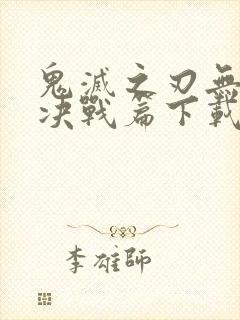 鬼滅之刃無
决戰篇下載
李雄師